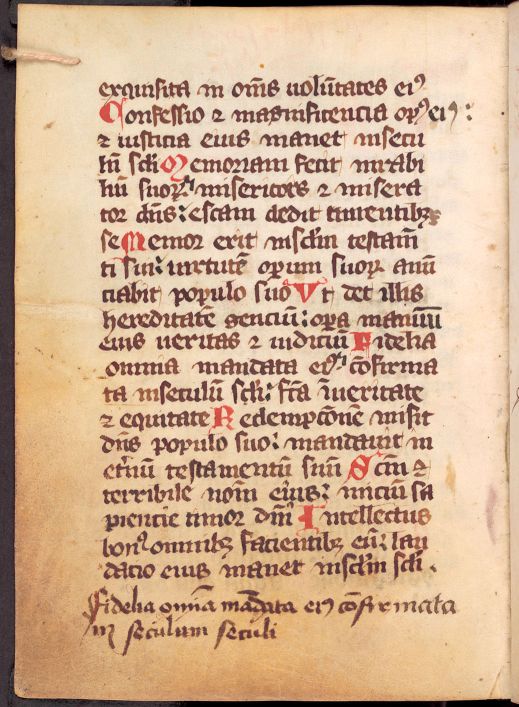 exquisita in om̄s uolūtates eiꝰ
Confessio ⁊ magnificencia opꝰ eiꝰ:
⁊ iusticia eius manet insecu
lū sc̄li Memoriam fecit mirabi
liū suoꝝ: misericors ⁊ misera
tor dn̄s: escam dedit timentibꝫ
se Memor erit insc̄lm testam̄
ti sui: uirtutē operum suoꝝ anū
ciabit populo suo Vt det illis
hereditatē genciū: opera manuum
eius ueritas ⁊ iudiciū Fidelia
omnia mandata eiꝰ: cōfirma
ta inseculū sc̄li: fc̄a īueritate
⁊ equitate Redempcōnē misit
dn̄s populo suo: mandauit in
et̄nū testamentū suū Sc̄m ⁊
terribile nom̄ eius: iniciū sa
piencie timor dn̄i Intellectus
bonꝰ omnibꝫ facientibꝫ eū: lau
dacio eius manet insc̄lm sc̄li.
Fidelia omīa mādata eiꝰ cōfirmata
in seculum seculi